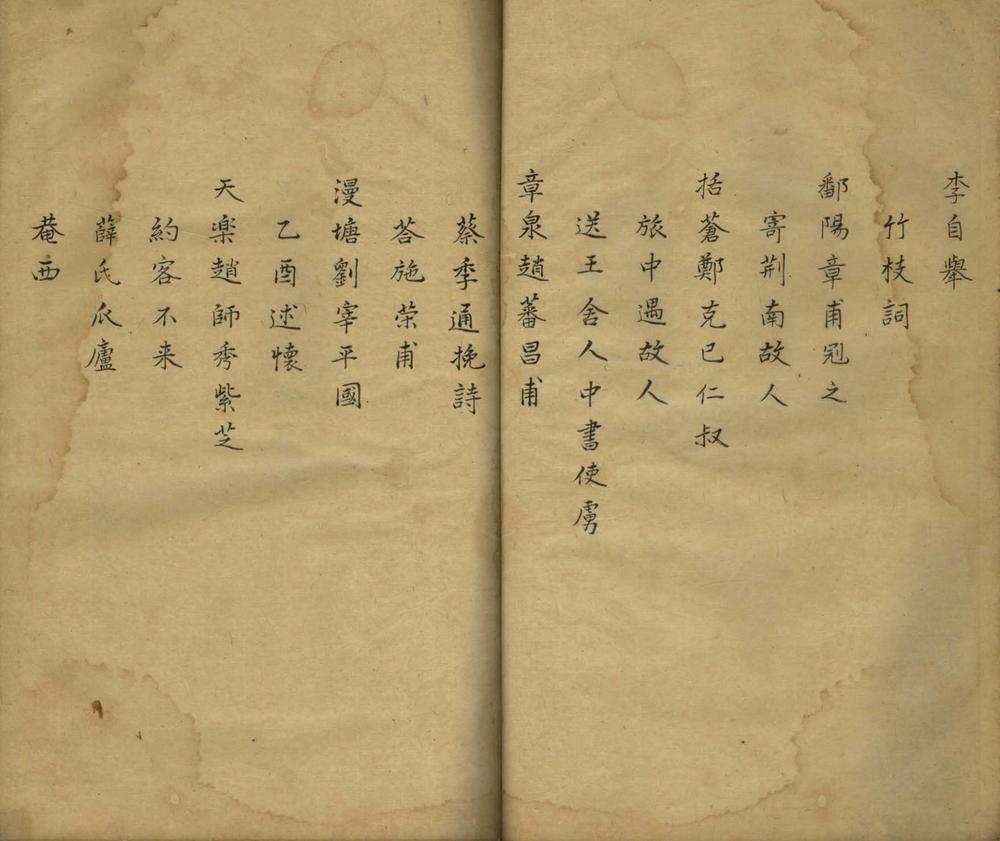 李自舉
竹枝詞
鄱陽章甫冠之
寄荆南故人
括蒼鄭克已仁叔
旅中遇故人
送王舍人中書使虜
章泉趙蕃昌甫
蔡季通挽詩
荅施榮甫
漫塘劉宰平國
乙酉述懷
天楽趙師秀紫芝
約客不来
薛氏瓜廬
菴西